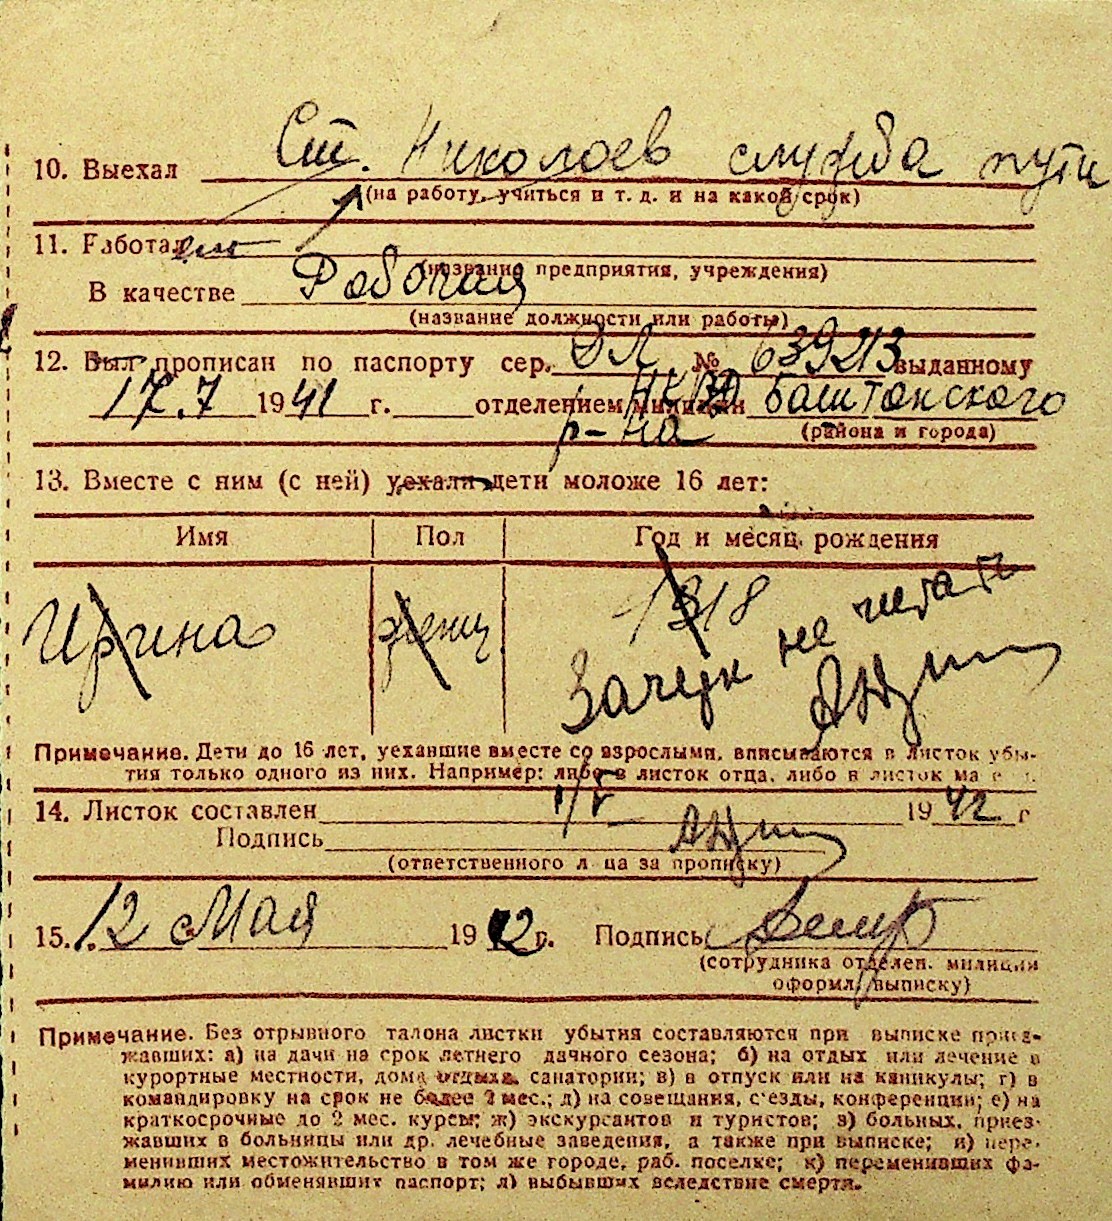 10. Выехал Ст. Николаев служба пути
(на работу, учиться и т. д. и на какой срок)
11. Работает
(название предприятия, учреждения)
В качестве Рабочая
(название должности или работы)
12. Был прописан по паспорту сер. ДЛ № 639213 выданному
17.7 1941 г. отделением милиции НКВД Баштанского
р-на (района и города)
13. Вместе с ним (с ней) уехали дети моложе 16 лет:
Имя Пол Год и месяц рождения
Ирина женщ 1918
Зачерк не читать
Примечание. Дети до 16 лет, уехавшие вместе со взрослыми, вписываются в листок убы-
тия только одного из них. Например: либо в листок отца, либо в листок ма е
14. Листок составлен 1/V 1942 г
Подпись
(ответственного л ца за прописку)
15. 12 Мая 1942 г. Подпись
(сотрудника отделен. милиции
оформл. выписку)
Примечание. Без отрывного талона листки убытия составляются при выписке приез-
жавших: а) на дачи на срок летнего дачного сезона; б) на отдых или лечение в
курортные местности, дома отдыха, санатории; в) в отпуск или на каникулы; г) в
командировку на срок не более 2 мес.; д) на совещания, с'езды, конференции; е) на
краткосрочные до 2 мес. курсы; ж) экскурсантов и туристов; з) больных, приез-
жавших в больницы или др. лечебные заведения, а также при выписке; и) пере-
менивших местожительство в том же городе, раб. поселке; к) переменивших фа-
милию или обменявших паспорт; л) выбывших вследствие смерти.